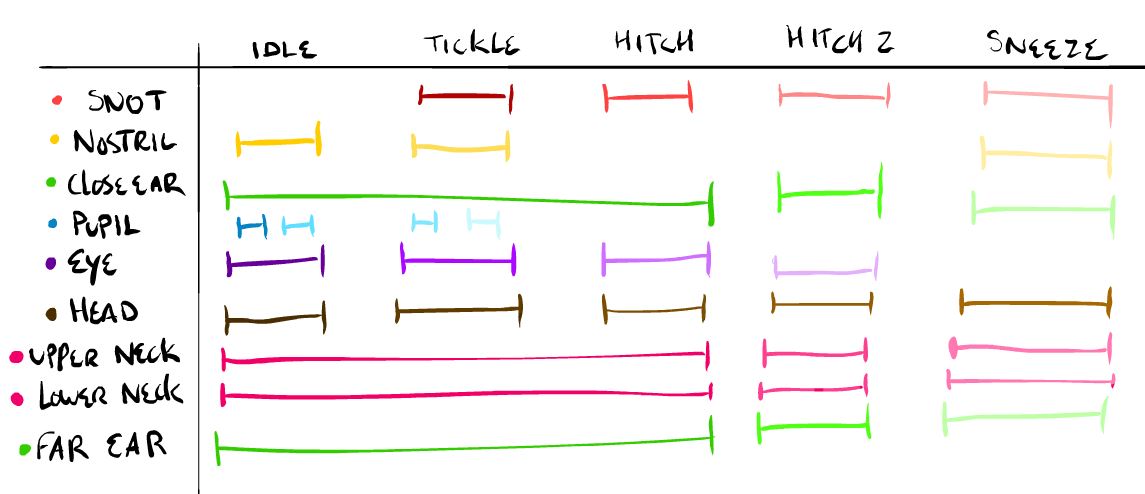 IDLE TICKLE HITCH HITCH 2 SNEEZE
SNOT
NOSTRIL
CLOSE EAR
PUPIL
EYE
HEAD
UPPER NECK
LOWER NECK
FAR EAR